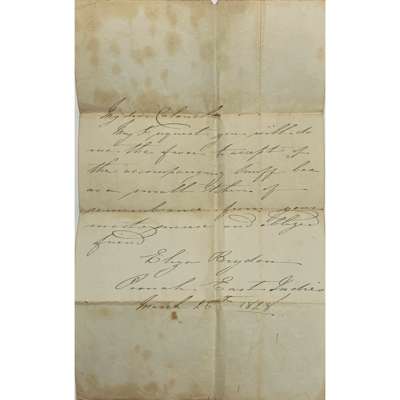 My dear Colonel
May I request you will do
me the favor to accept of
the accompanying snuff box
as a small token of
remembrance from your
most sincere and obliged
friend
Eliza Brydon
Poonah East Indies
March 25th 1828